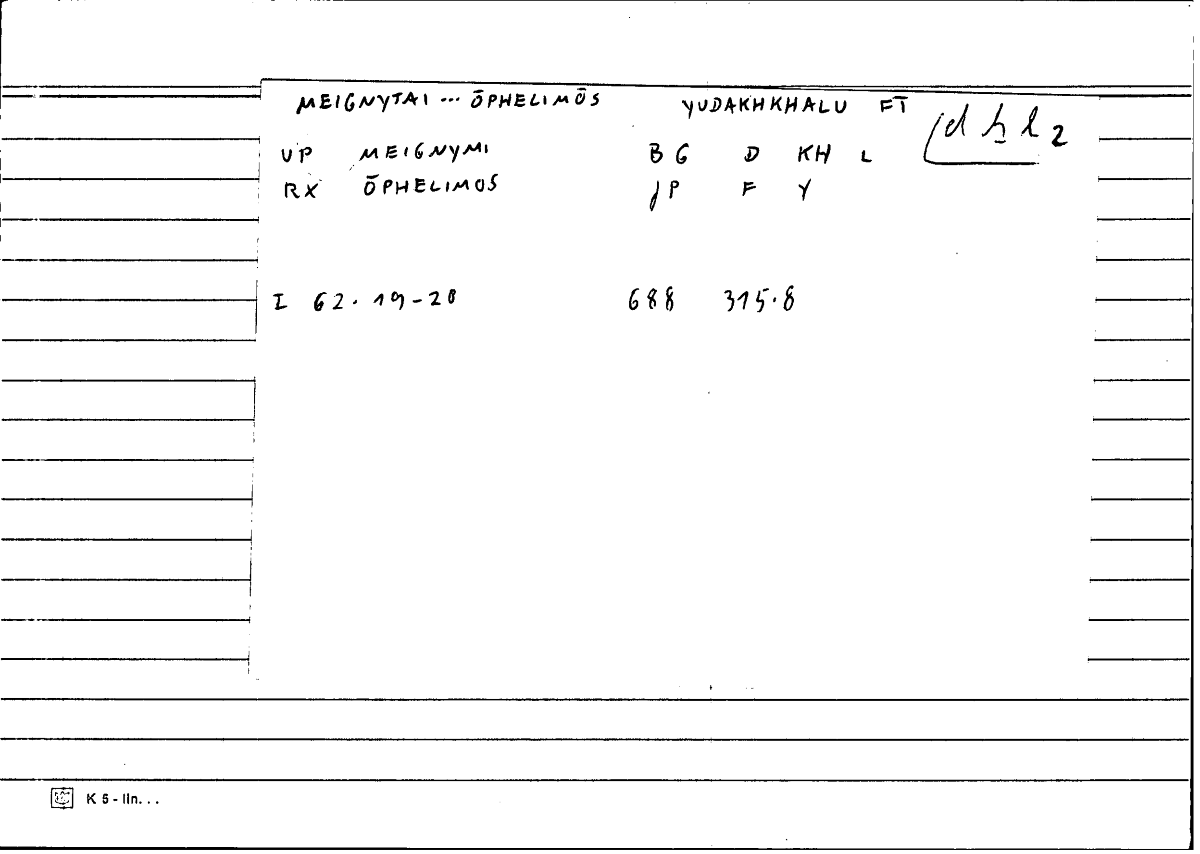 MEIGNYTAI ... ŌPHELIMŌS YUDAKHKHALU FĪ
d ḫ l 2
UP MEIGNYMI B G D KH L
RX ŌPHELIMOS P F Y
I 62.19-20 688 315.8
K 5 - lin. . .